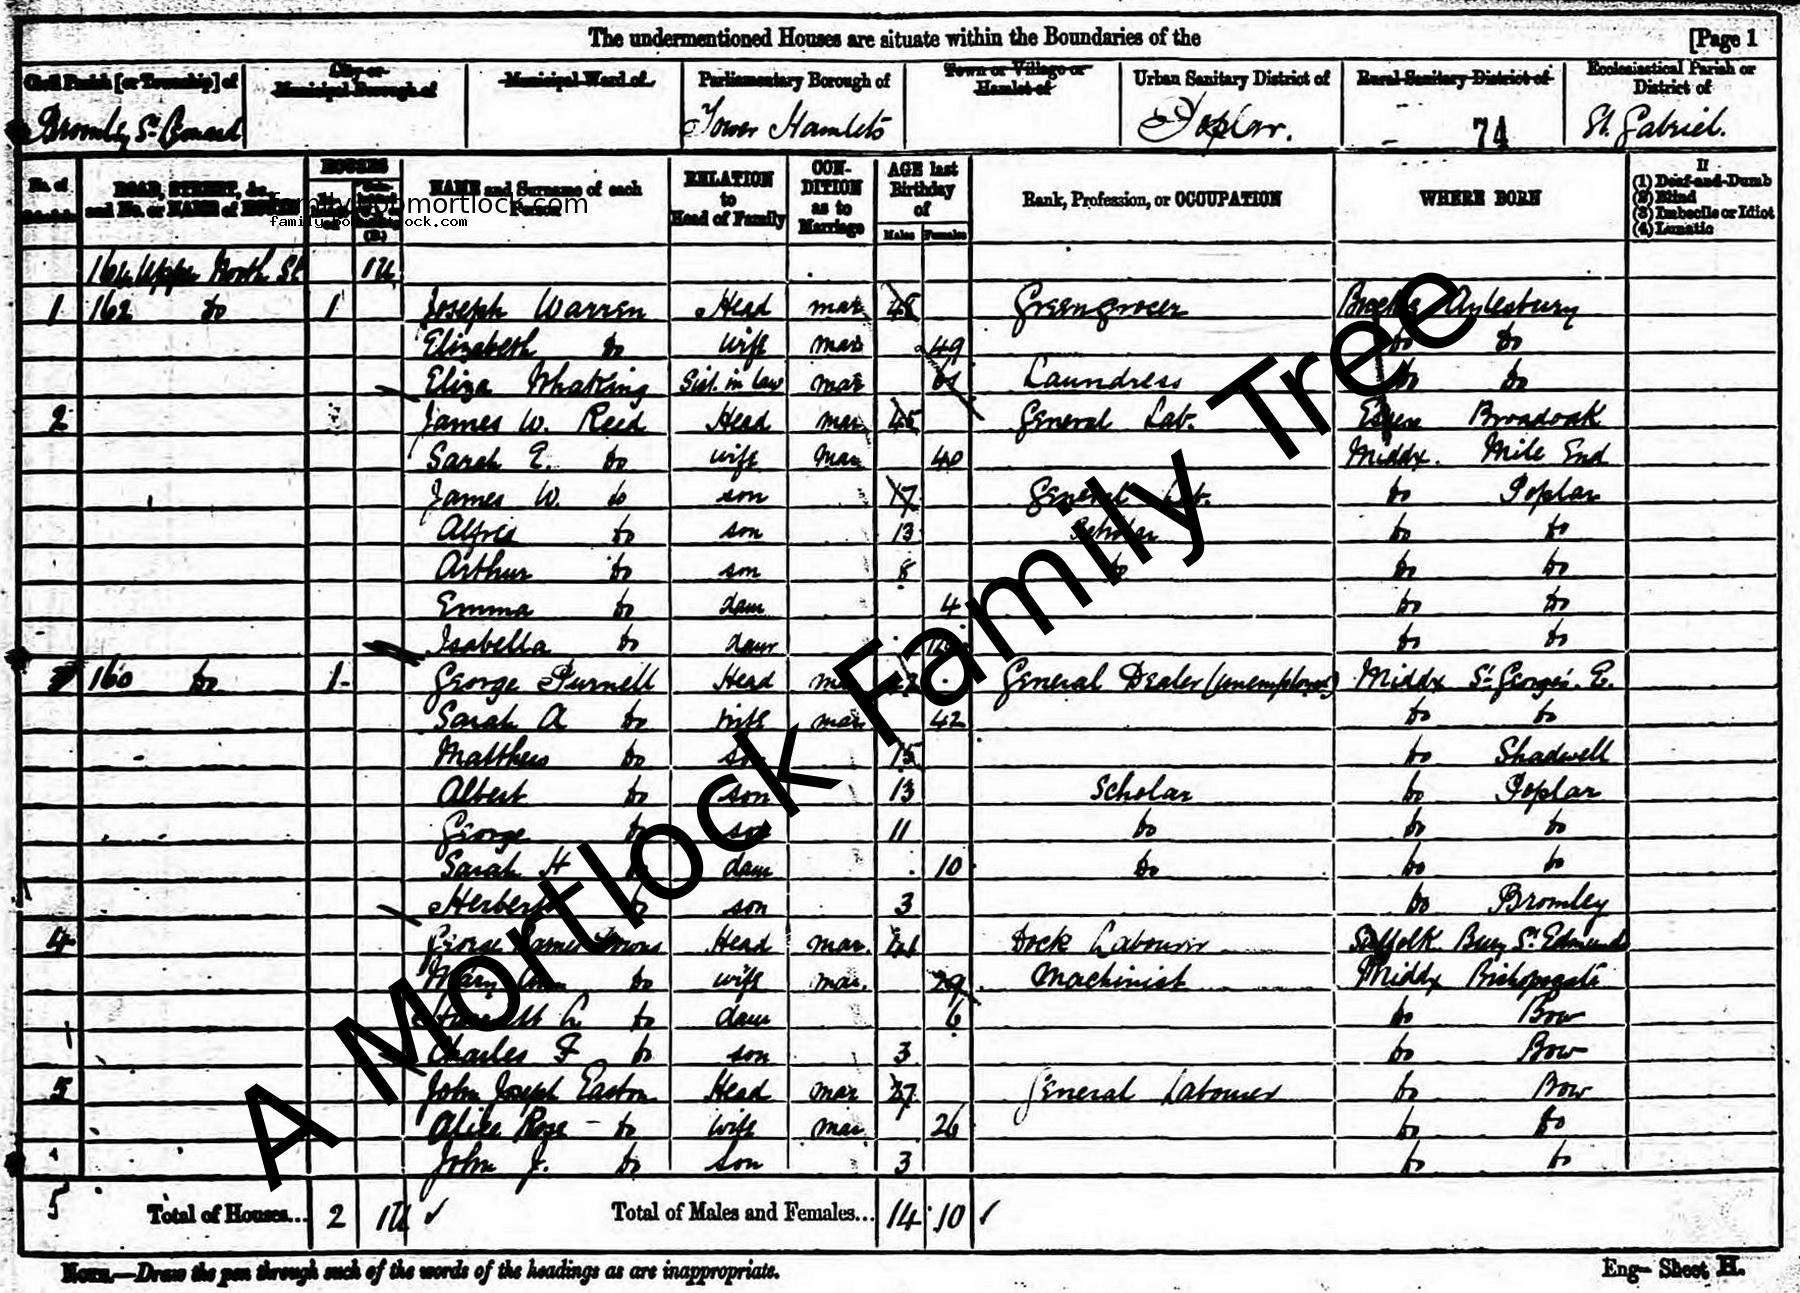 The undermentioned Houses are situate within the Boundaries of the [Page 1
Civil Parish [or Township] of City or Municipal Borough of Municipal Ward of Parliamentary Borough of Town or Village or Hamlet of Urban Sanitary District of Rural Sanitary District of Ecclesiastical Parish or District of
Bromley St Leonard Tower Hamlets Poplar. 74 St. Gabriel.
No. of ROAD, STREET, &c., and No. or NAME of HOUSE HOUSES NAME and Surname of each Person RELATION to Head of Family CON-DITION as to Marriage AGE last Birthday of Males Females Rank, Profession, or OCCUPATION WHERE BORN If (1) Deaf-and-Dumb (2) Blind (3) Imbecile or Idiot (4) Lunatic
family.bobmortlock.com
family.bobmortlock.com
164 Upper North St 1U
1 162 Do 1 Joseph Warren Head mar 48 Greengrocer Bucks Aylesbury
Elizabeth Do wife mar 49 Do Do
Eliza Sist. in law mar Laundress Do Do
2 James W. Reed Head mar 45 General Lab. Essex Broadoak
Sarah E. Do wife mar 40 Middx. Mile End
James W. Do son 17 General Lab. Do Poplar
Alfred Do son 13 Scholar Do Do
Arthur Do son 8 Do Do Do
Emma Do daur 4 Do Do
Isabella Do daur Do Do
3 160 Do 1 George Purnell Head mar General Dealer (unemployed) Middx St George's. E.
Sarah A Do wife mar 42 Do Do
Matthew Do son 15 Do Shadwell
Albert Do son 13 Scholar Do Poplar
George Do son 11 Do Do Do
Sarah H Do daur 10 Do Do Do
Herbert Do son 3 Do Bromley
4 George James Head mar. Dock Labourer Suffolk Bury St. Edmunds
Mary Ann Do wife mar. 29 Machinist Middx Bishopsgate
Do daur 6 Do Bow
Charles F Do son 3 Do Bow
5 John Joseph Easton Head mar 27 General Labourer Do Bow
Alice Rose Do wife mar 26 Do Do
John J. Do Son 3 Do Do
5 Total of Houses... 2 1U ✓ Total of Males and Females... 14 10 ✓
NOTE.—Draw the pen through such of the words of the headings as are inappropriate. Eng— Sheet H.
A Mortlock Family Tree